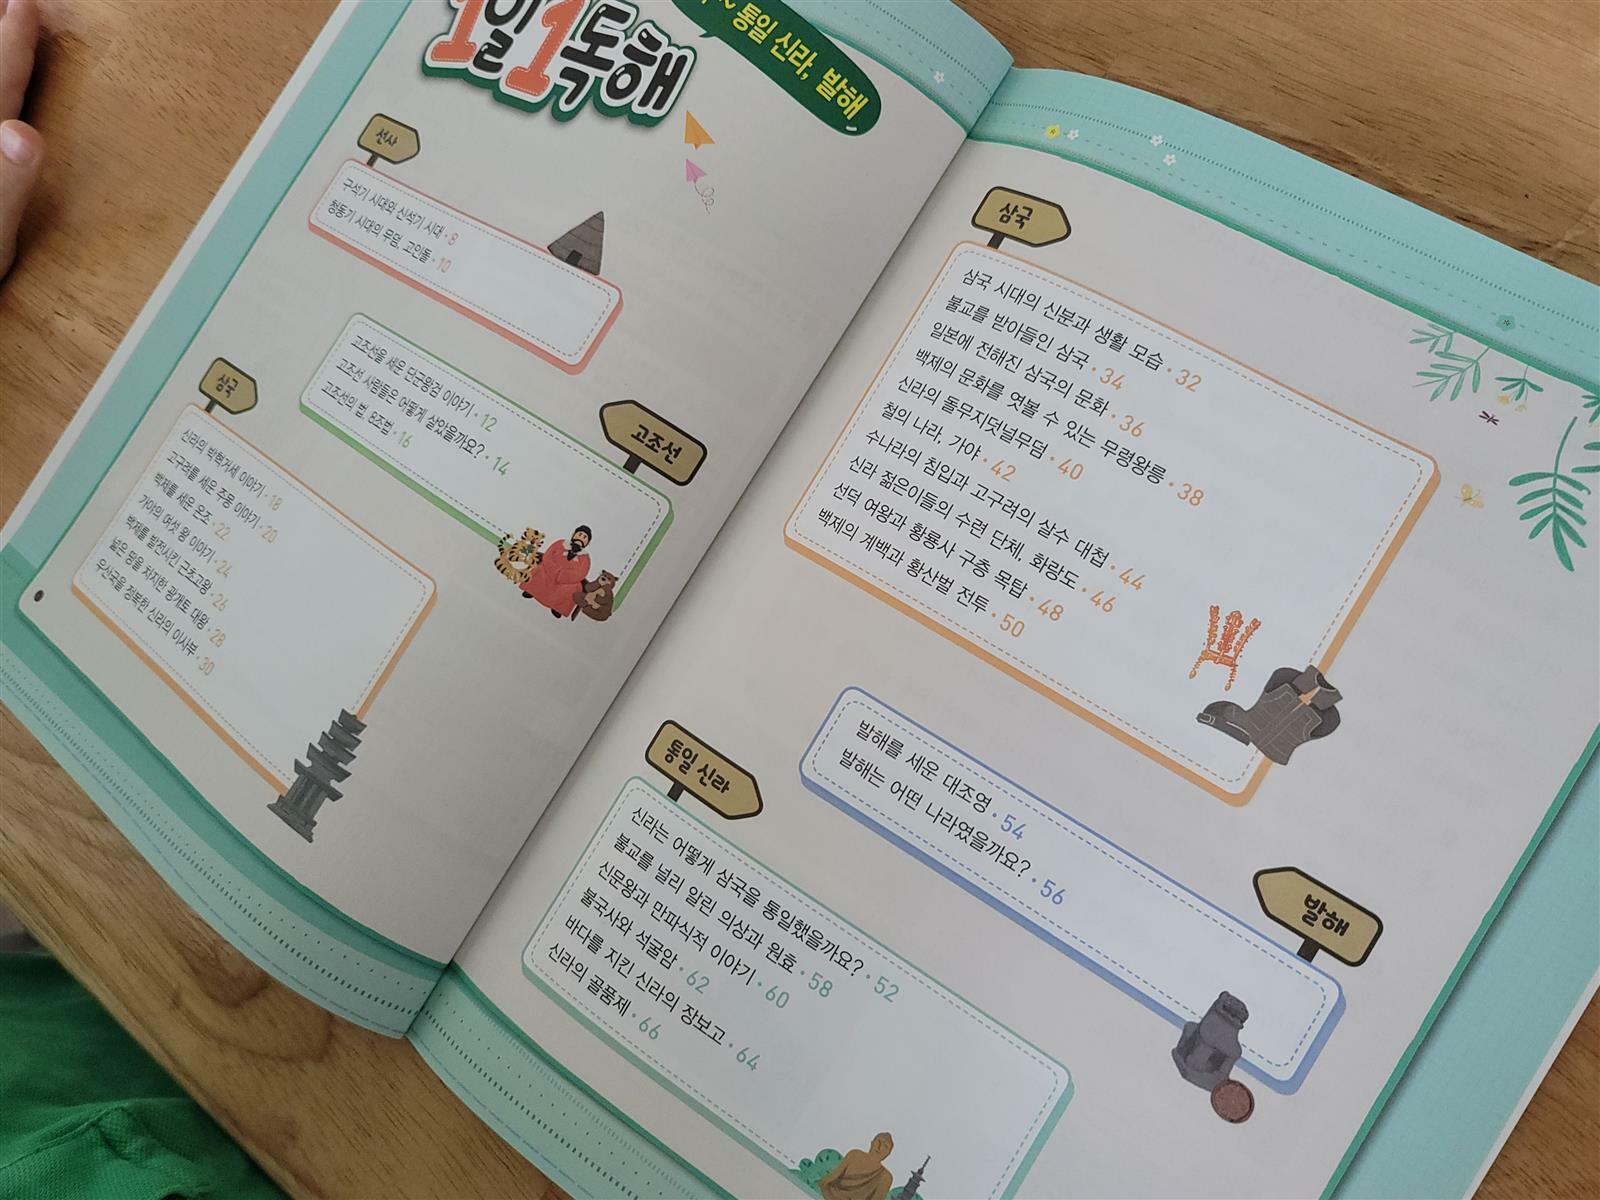 1일1독해
~ 통일 신라, 발해
선사
구석기 시대와 신석기 시대 • 8
청동기 시대의 무덤, 고인돌 • 10
고조선
고조선을 세운 단군왕검 이야기 • 12
고조선 사람들은 어떻게 살았을까요? • 14
고조선의 법, 8조법 • 16
삼국
신라의 박혁거세 이야기 • 18
고구려를 세운 주몽 이야기 • 20
백제를 세운 온조 • 22
가야의 여섯 왕 이야기 • 24
백제를 발전시킨 근초고왕 • 26
넓은 땅을 차지한 광개토 대왕 • 28
우산국을 정복한 신라의 이사부 • 30
삼국
삼국 시대의 신분과 생활 모습 • 32
불교를 받아들인 삼국 • 34
일본에 전해진 삼국의 문화 • 36
백제의 문화를 엿볼 수 있는 무령왕릉 • 38
신라의 돌무지덧널무덤 • 40
철의 나라, 가야 • 42
수나라의 침입과 고구려의 살수 대첩 • 44
신라 젊은이들의 수련 단체, 화랑도 • 46
선덕 여왕과 황룡사 구층 목탑 • 48
백제의 계백과 황산벌 전투 • 50
통일 신라
신라는 어떻게 삼국을 통일했을까요? • 52
불교를 널리 알린 의상과 원효 • 58
신문왕과 만파식적 이야기 • 60
불국사와 석굴암 • 62
바다를 지킨 신라의 장보고 • 64
신라의 골품제 • 66
발해
발해를 세운 대조영 • 54
발해는 어떤 나라였을까요? • 56